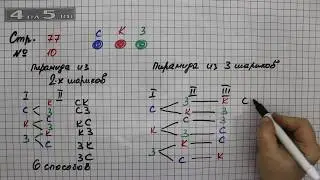 Стр. 77 С К З
№ 10
Пирамида из
2х шариков
I II
К СК
С З СЗ
С КС
К З КЗ
К ЗК
З С ЗС
6 способов
Пирамида из 3 шариков
I II III
З К С
С К З
С З
К З С
К С
З С К